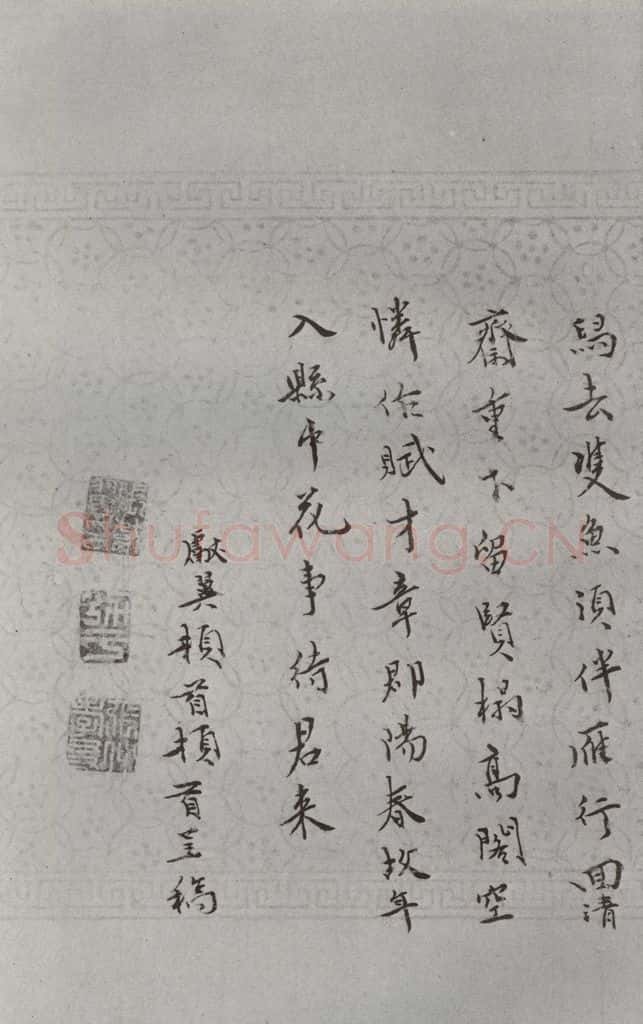 舄去雙鳧須伴雁行回清
齋重下留賢榻高閣空
憐作賦才章即陽春年
入縣中花事待君来
獻翼頓首頓首呈稿
Shufawang.CN